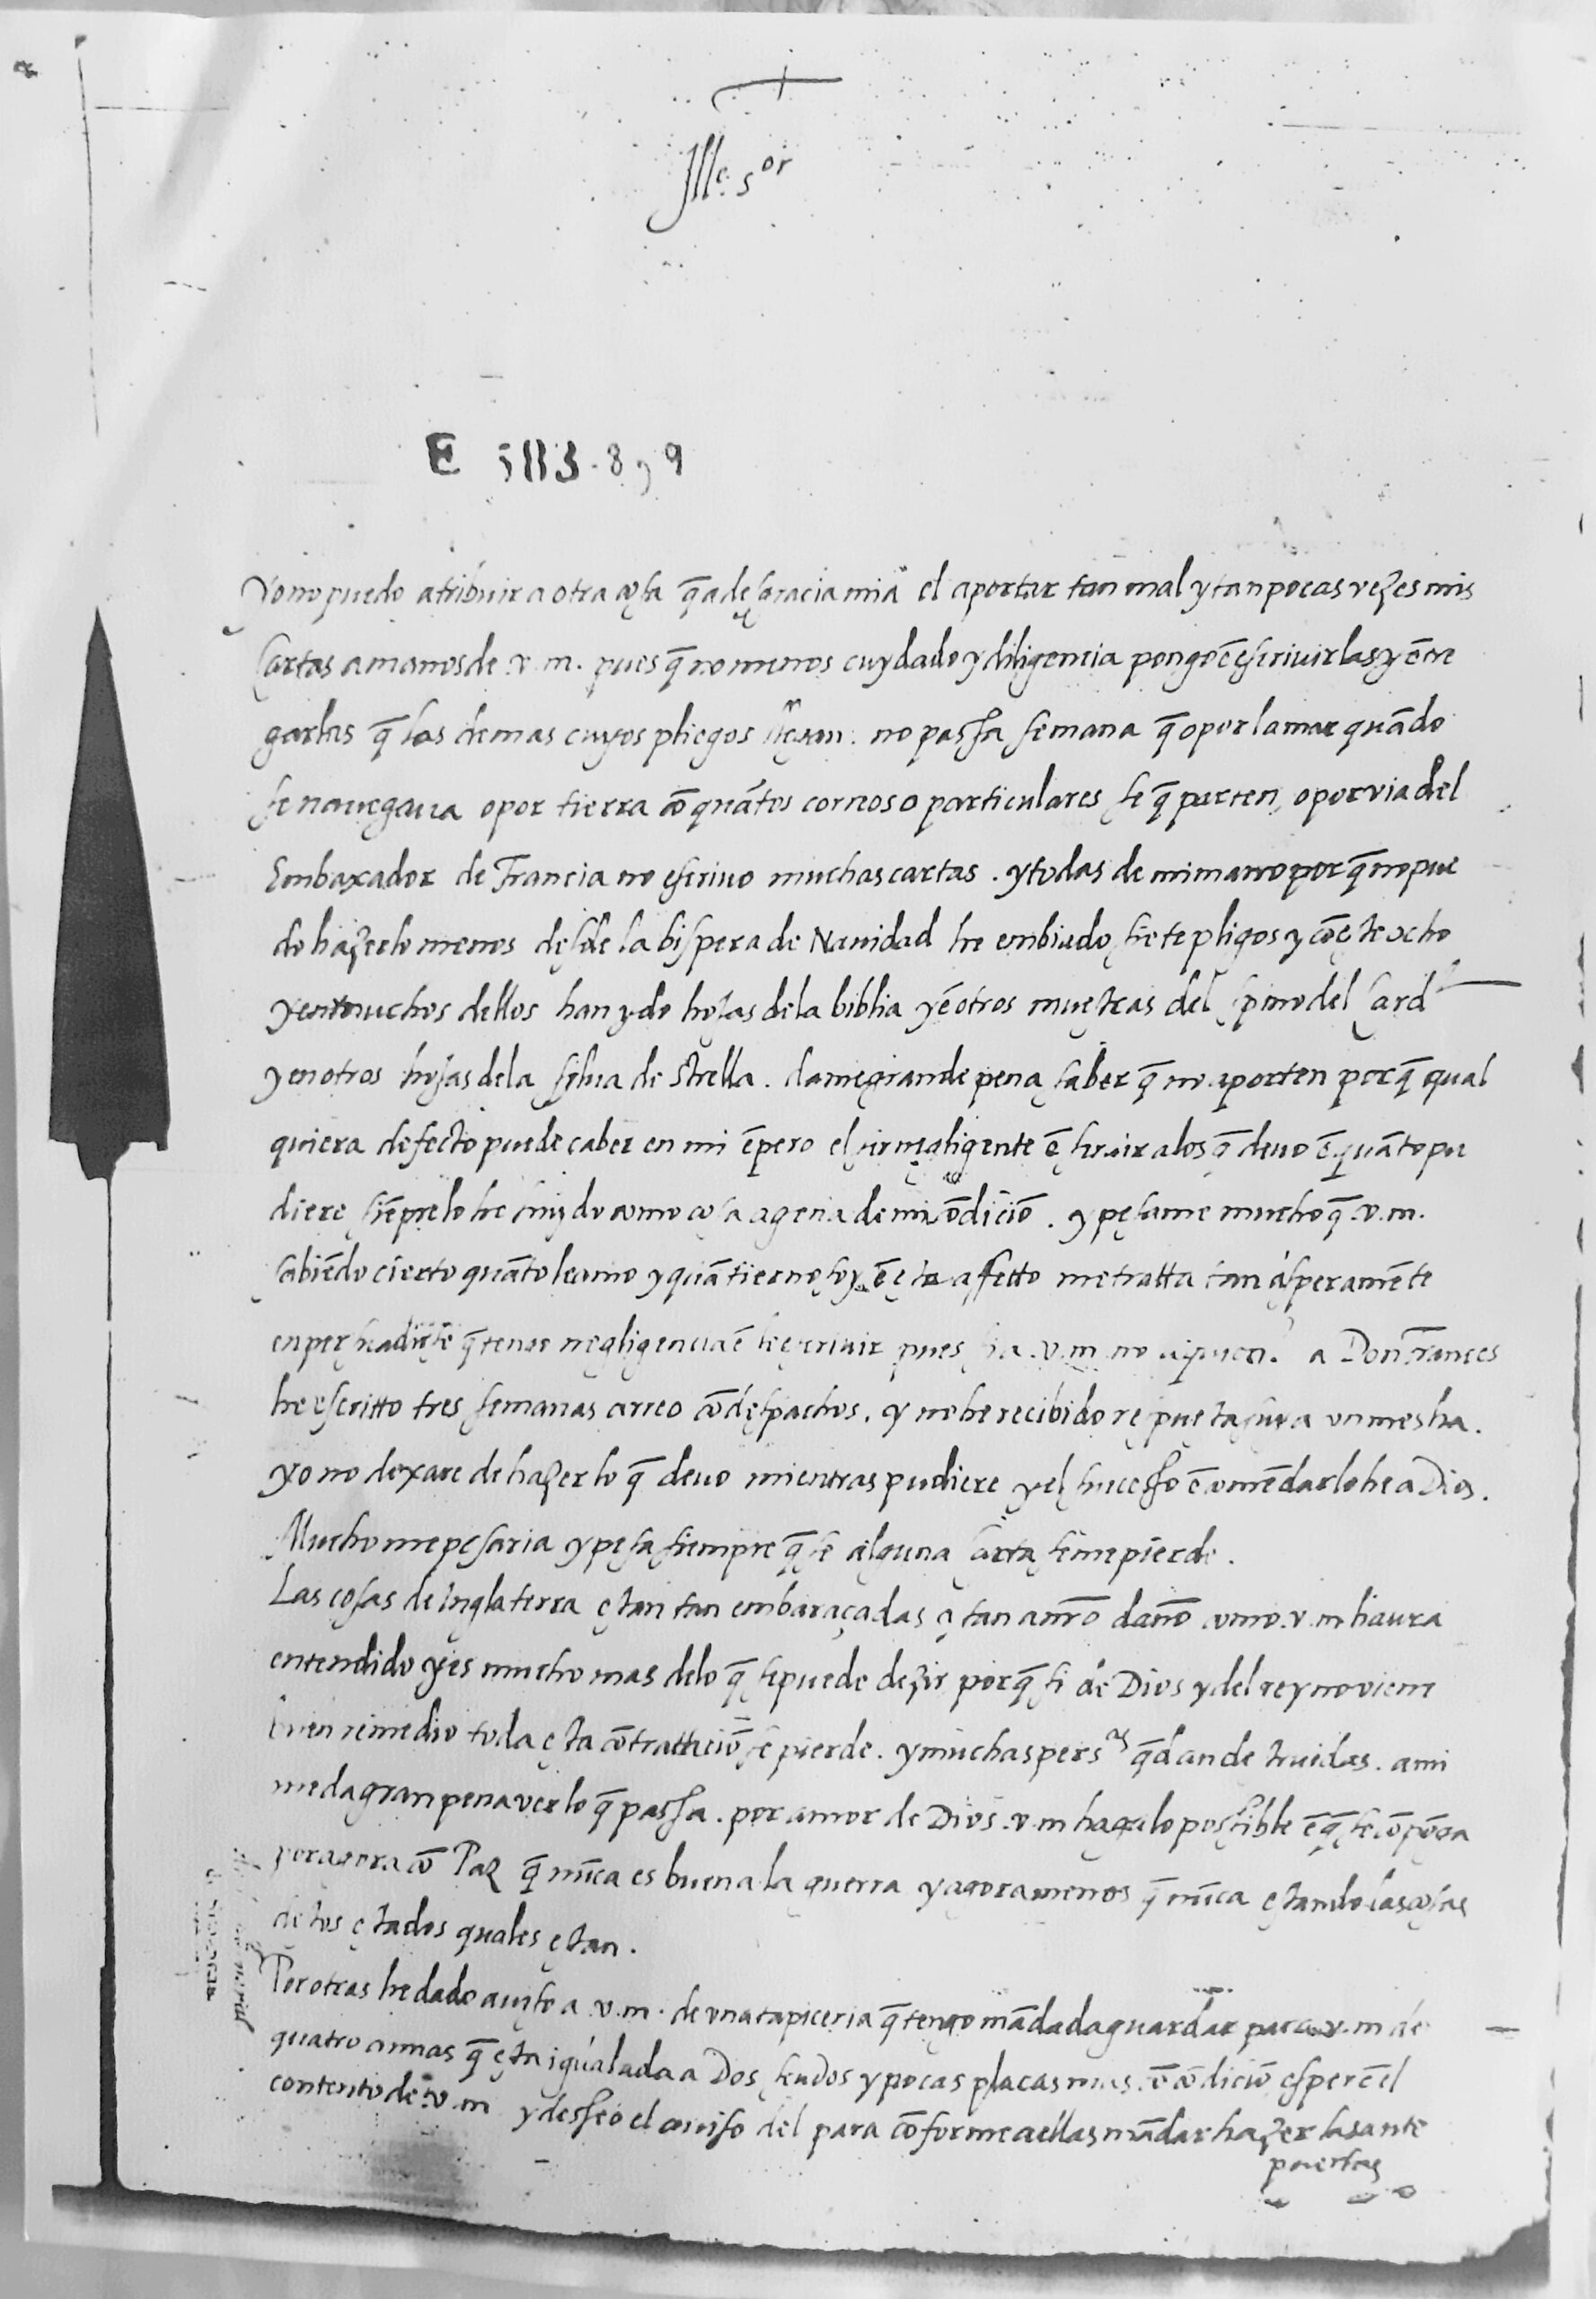 Ille. Sor
E 583-8 y 9
Yo no puedo atribuir a otra cosa q̃ a desgracia mia el aportar tan mal y tan pocas vezes mis
cartas a manos de .v.m. pues q̃ no menos cuydado y diligencia pongo ẽ escriuirlas y ẽtre
garlas q̃ los demas cuyos pliegos llegan. no passa semana q̃ o por la mar quãdo
se nauegaua o por tierra cõ quãtos correos o particulares se q̃ parten, o por via del
Embaxador de Francia no escriuo muchas cartas. y todas de mi mano porq̃ no pue
do hazerlo menos desde la bispera de Nauidad he embiado siete pligos y cõ este ocho
y en muchos dellos han ydo hojas de la biblia y ẽ otros muestras del del Card
y en otros hojas de la sylua de Strella. dame grande pena saber q̃ no aporten porq̃ qual
quiera defecto puede caber en mi ẽpero el ser negligente ẽ seruir a los q̃ deuo ẽ quãto pu
diere siẽpre lo he huydo como cosa agena de mi cõdiciõ. y pesame mucho q̃ .v.m.
sabiẽdo cierto quãto le amo y quã tierno soy ẽ este affetto me tratta tan ásperamẽte
en persuadirse q̃ tengo negligencia ẽ le escriuir pues a .v.m. no a Don Frances
he escritto tres semanas arreo cõ despachos. y no he recibido respuesta suya un mes ha.
yo no dexare de hazer lo q̃ deuo mientras pudiere y el sucesso ẽcomẽdarlo he a Dios.
Mucho me pesaria y pesa siempre q̃ se alguna carta se me pierde.
Las cosas de Inglaterra estan tan embaraçadas y tan a nr̃o daño como .v.m haura
entendido y es mucho mas de lo q̃ se puede dezir porq̃ si de Dios y del rey no viene
buen remedio toda esta cõtrattaciõ se pierde. y muchas persas q̃dan destruidas. a mi
me da gran pena ver lo q̃ passa. por amor de Dios .v.m haga lo possible ẽ q̃ se cõpõga
por agora cõ Paz q̃ nũca es buena la guerra y agora menos q̃ nũca estando las cosas
destos estados quales estan.
Por otras he dado auiso a .v.m. de una tapiceria q̃ tengo mãdada guardar para .v.m de
quatro annas q̃ esta igualada a Dos scudos y pocas placas mas. cõdiciõ espere el
contento de .v.m y desseo el auiso del para cõforme a ellas mãdar hazer las ante
puertas